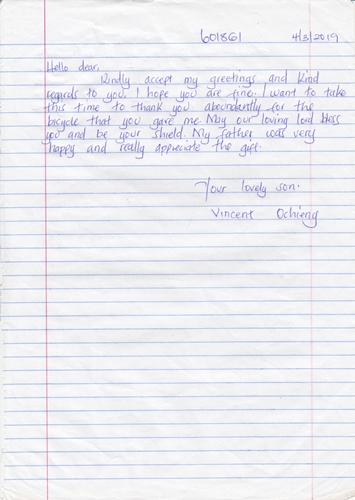 601861 4/3/2019
Hello dear,
Kindly accept my greetings and kind
regards to you. I hope you are fine. I want to take
this time to thank you abundantly for the
bicycle that you gave me. May our loving lord bless
you and be your shield. My father was very
happy and really appreciate the gift.
Your lovely son.
Vincent Ochieng